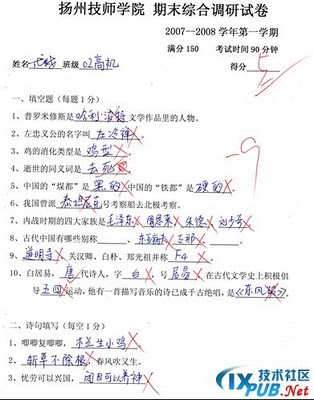 扬州技师学院 期末综合调研试卷
2007--2008 学年第一学期
满分 150 考试时间 90 分钟
姓名 班级 02高机 得分 5
一、填空题（每题 1 分）
-9
1、普罗米修斯是哈利波特文学作品里的人物。
2、左忠义公的名字叫 左冷禅。
3、鸡的消化类型是 鸡型。
4、逝世的同义词是 去死。
5、中国的“煤都”是 黑的 中国的“铁都”是 硬的。
6、我国曾派 泰坦尼克 号考察船去北极考察。
7、内战时期的四大家族是 毛泽东 周恩来 朱德 刘少奇
8、古代中国有哪些别称 、东亚病夫、支那、
9、道明寺、关汉卿、白朴、郑光祖并称 F4
10、白居易，唐 代诗人，字 白 号 居易 在古代文学史上积极倡
导 五四 运动，他有一首描写音乐的诗已成千古绝唱，是《东风破》
二、诗句填写（每空 1 分）
1、唧唧复唧唧，木兰生小鸡。
2、斩草不除根，春风吹又生。
3、忧劳可以兴国，闭目可以养神
IX 技术社区
PUB.Net